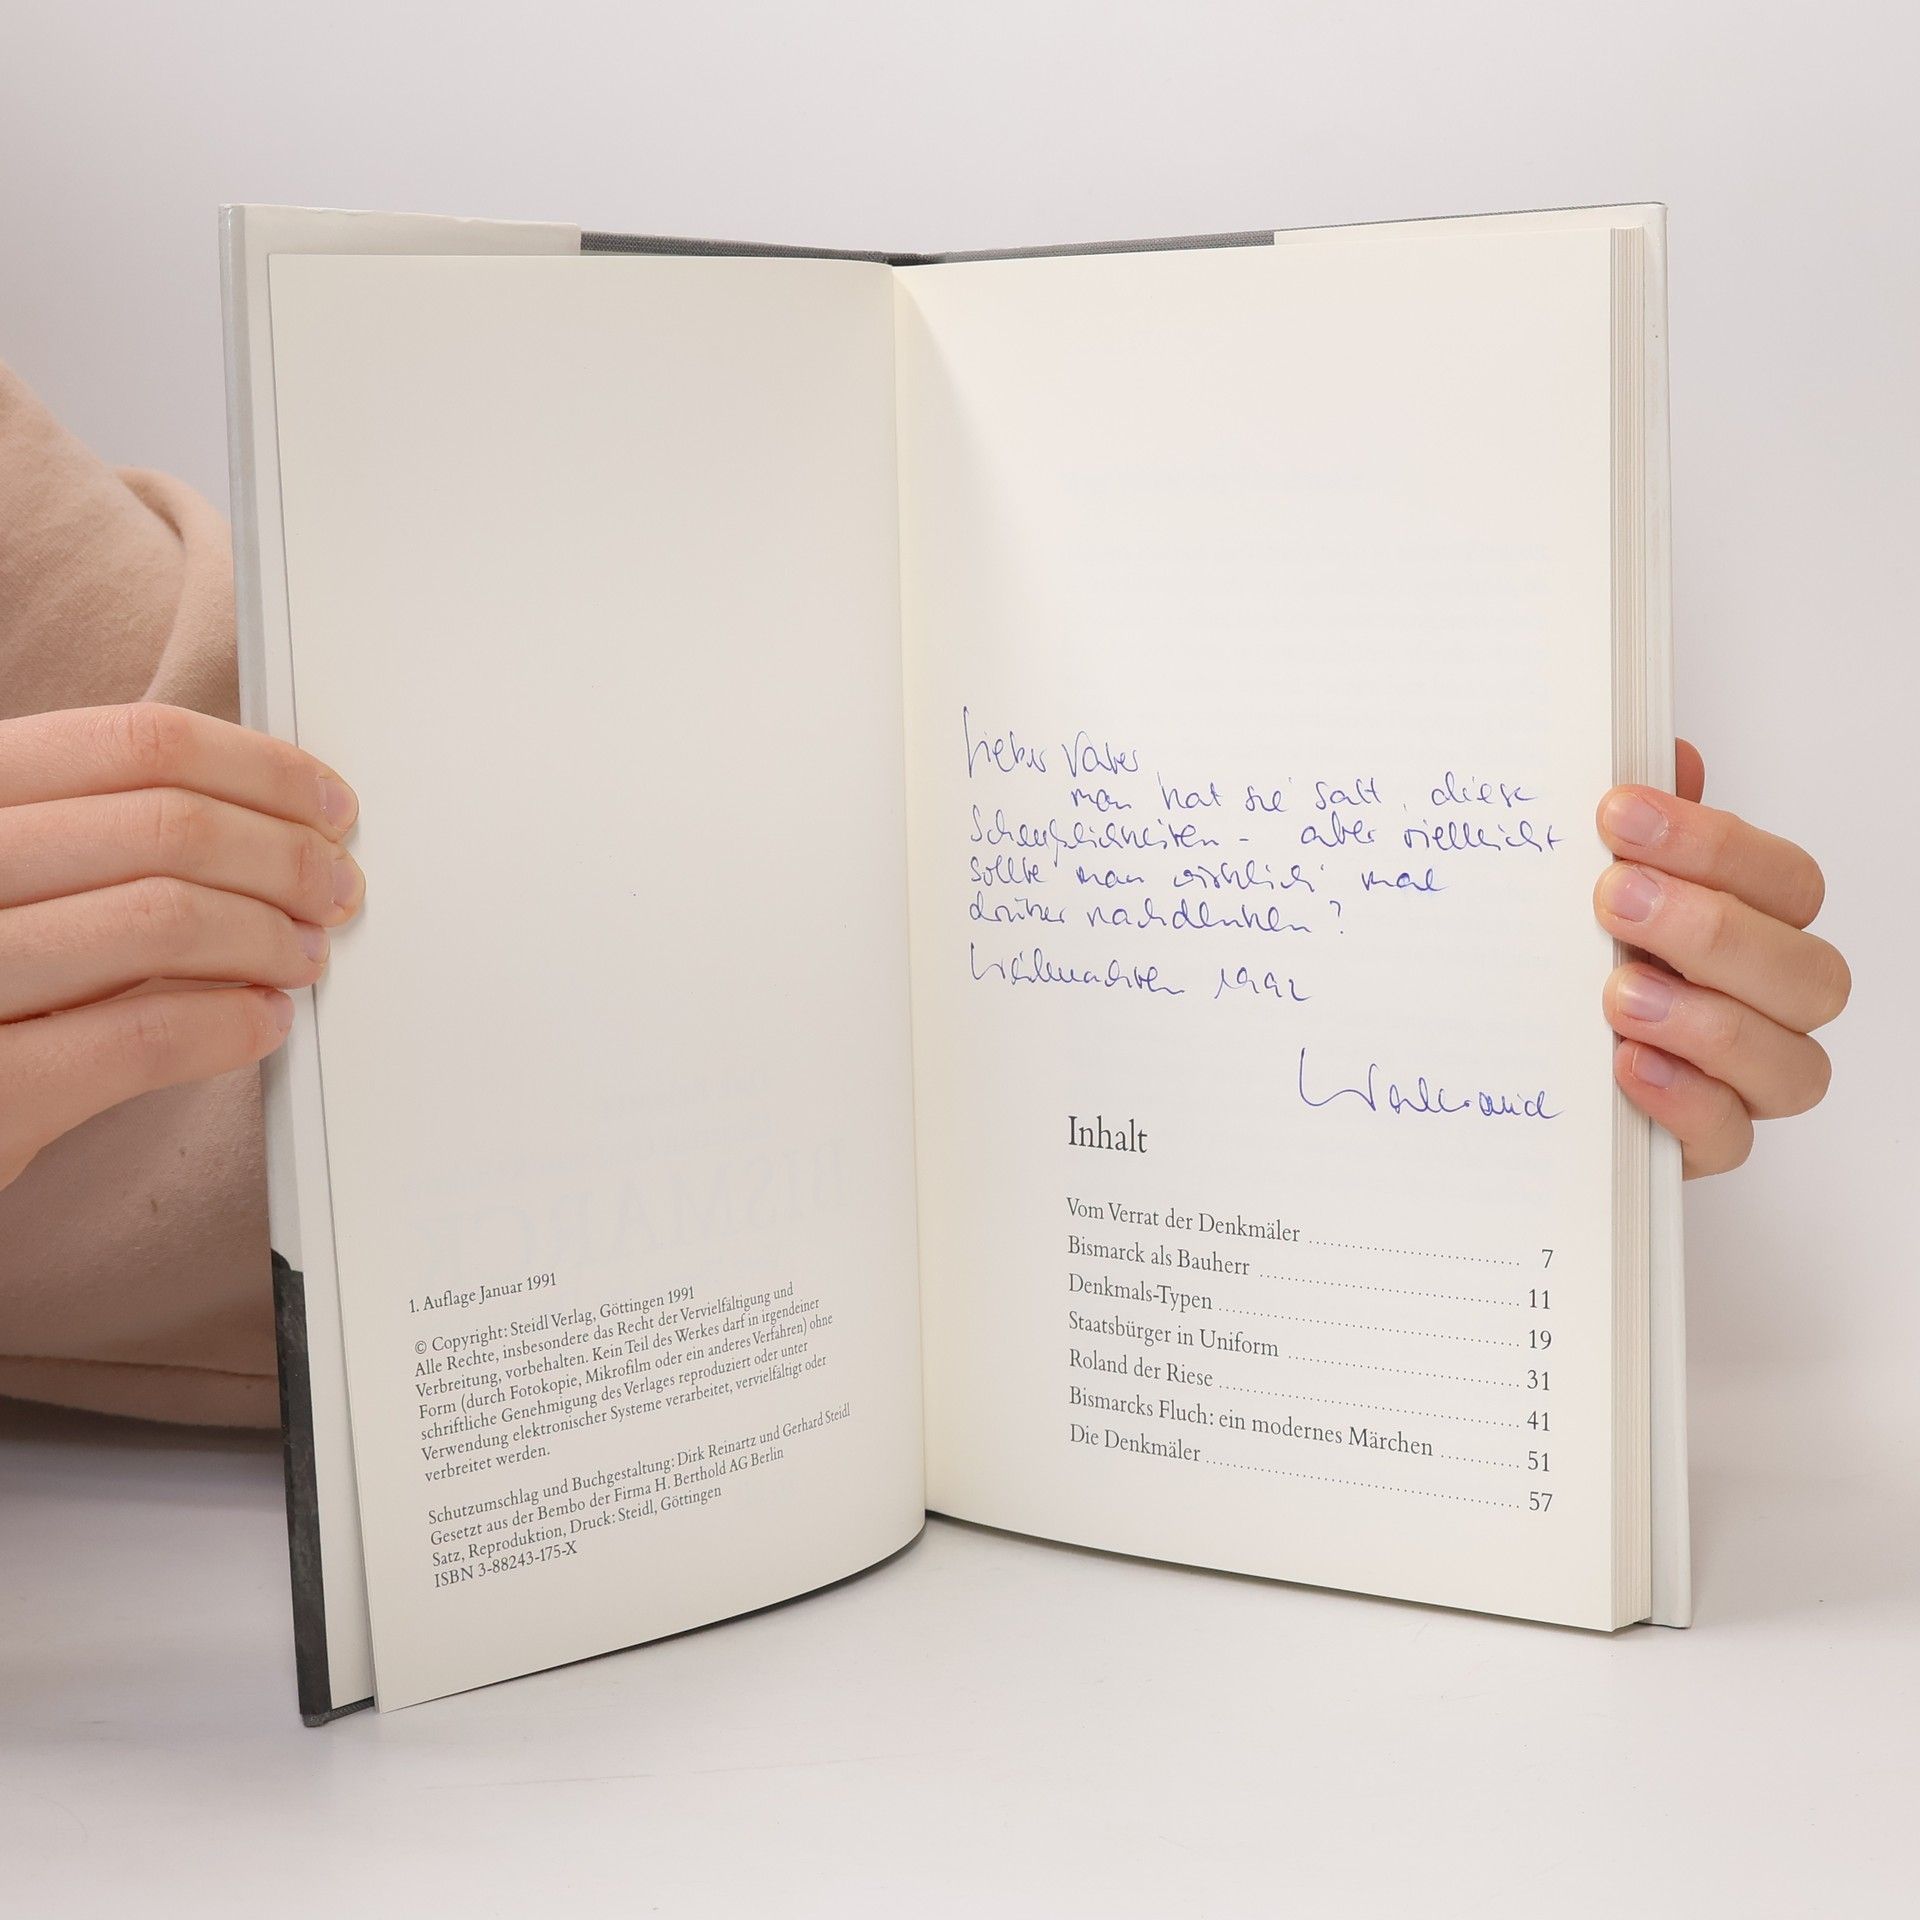 1. Auflage Januar 1991
© Copyright: Steidl Verlag, Göttingen 1991
Alle Rechte, insbesondere das Recht der Vervielfältigung und
Verbreitung, vorbehalten. Kein Teil des Werkes darf in irgendeiner
Form (durch Fotokopie, Mikrofilm oder ein anderes Verfahren) ohne
schriftliche Genehmigung des Verlages reproduziert oder unter
Verwendung elektronischer Systeme verarbeitet, vervielfältigt oder
verbreitet werden.
Schutzumschlag und Buchgestaltung: Dirk Reinartz und Gerhard Steidl
Gesetzt aus der Bembo der Firma H. Berthold AG Berlin
Satz, Reproduktion, Druck: Steidl, Göttingen
ISBN 3-88243-175-X
Lieber Vater
man hat sie satt, diese
Scheußlichkeiten - aber vielleicht
sollte man wirklich mal
drüber nachdenken?
Weihnachten 1992
Inhalt
Vom Verrat der Denkmäler 7
Bismarck als Bauherr 11
Denkmals-Typen 19
Staatsbürger in Uniform 31
Roland der Riese 41
Bismarcks Fluch: ein modernes Märchen 51
Die Denkmäler 57